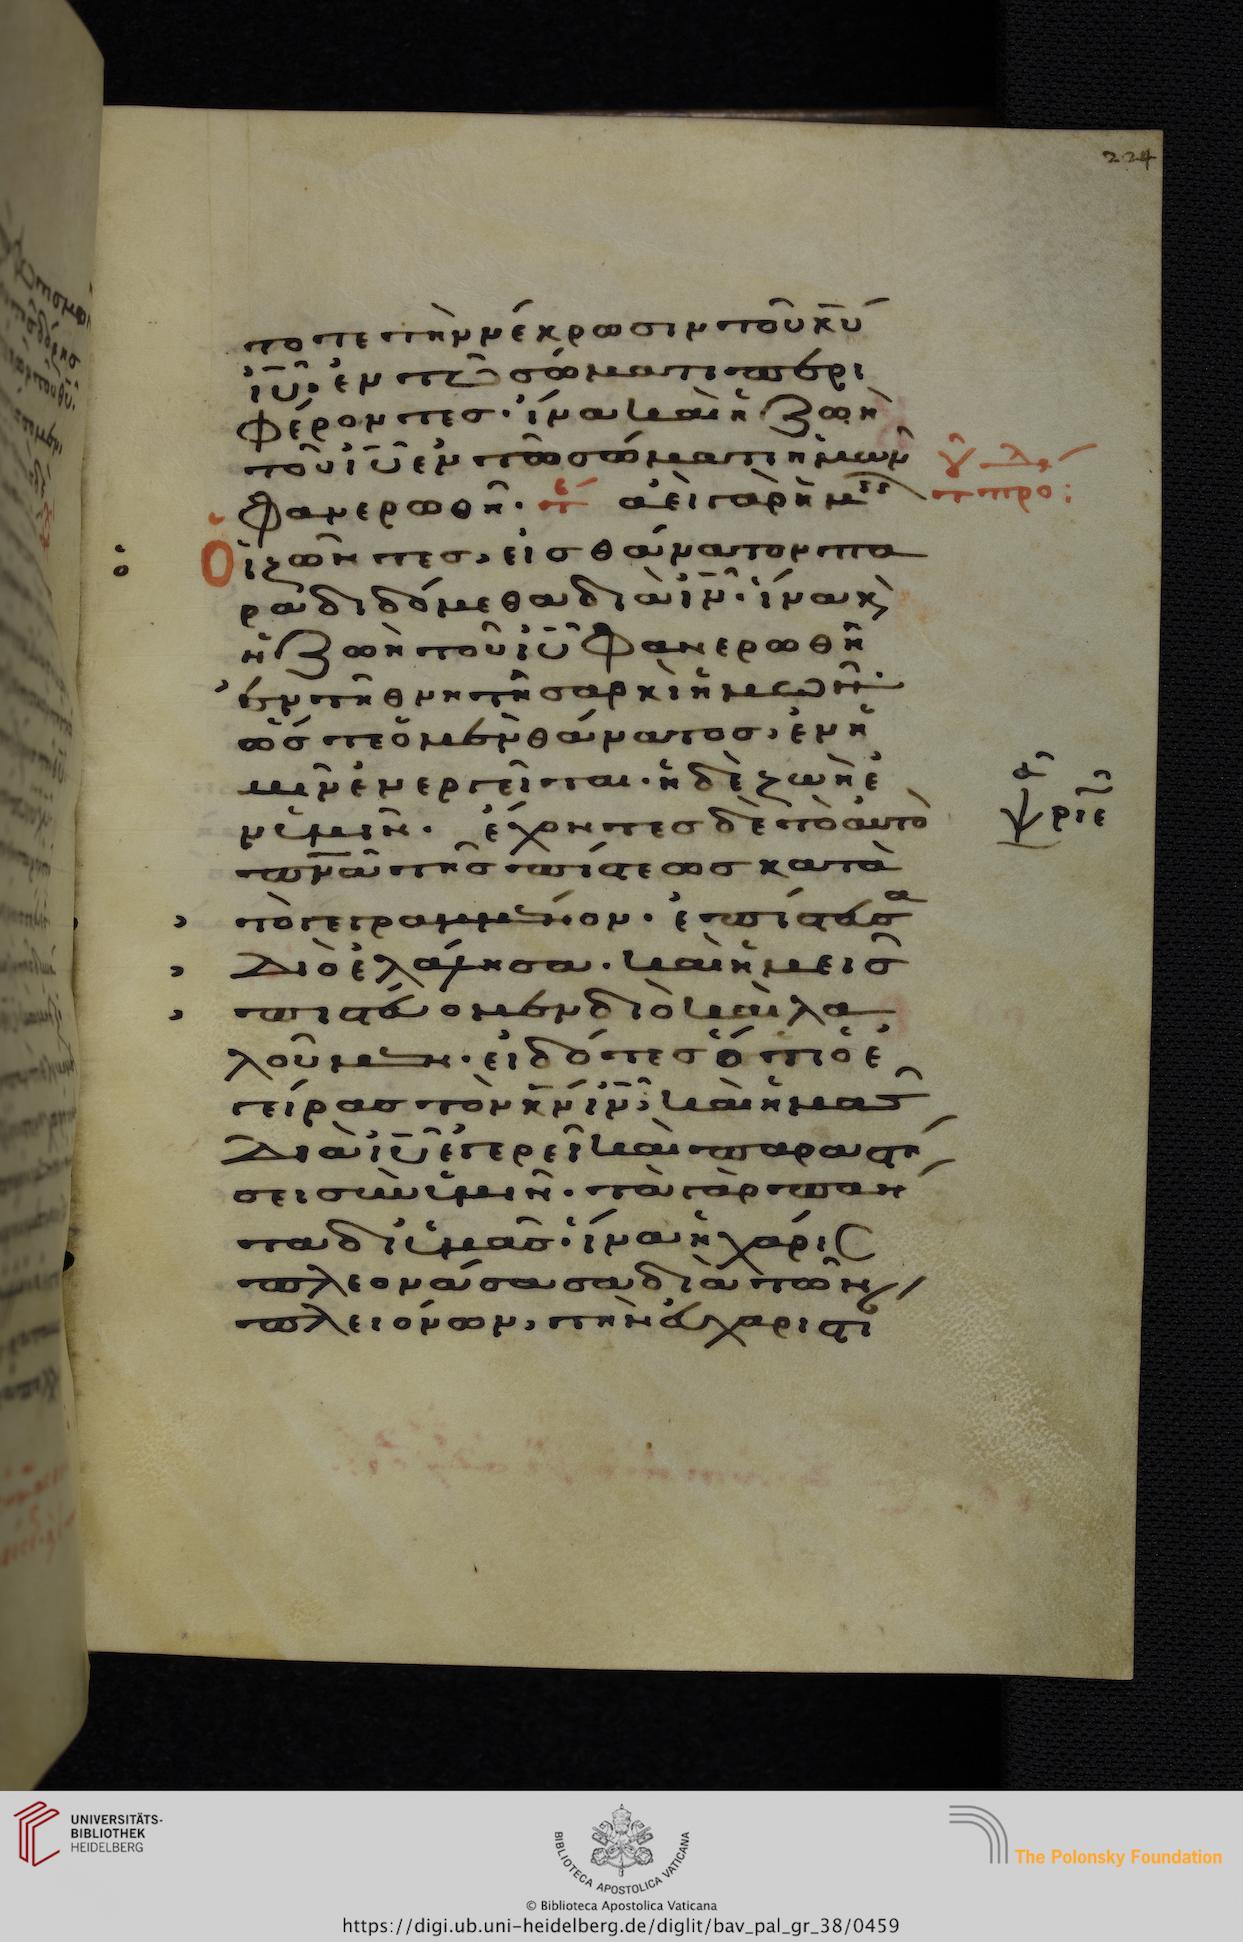 224
τοτε τὴν νέκρωσιν τοῦ κ̅υ̅
ι̅υ̅, ἐν τῶ σώματι περι
φέροντες· ἵνα καὶ ἡ ζωὴ
τοῦ ι̅υ̅ ἐν τῶ σώματι ἡμῶν
φανερωθῆ· ἀεὶ γὰρ ἡμεῖς
προ:
Οἱ ζῶντες, εἰς θάνατον πα
ραδιδόμεθα διὰ ι̅ν̅· ἵνα κ̀
ἡ ζωὴ τοῦ ι̅υ̅ φανερωθῆ
ἐν τῆ θνητῆ σαρκὶ ἡμῶν·
ὥστε ὁ μὲν θάνατος, ἐν ἡ
μῖν ἐνεργεῖται· ἡ δὲ ζωὴ ἐ
ν ὑμῖν· ἔχοντες δὲ τὸ αὐτὸ
π̅ν̅α̅ τῆς πίστεως κατὰ
τὸ γεγραμμένον· ἐπίστευσα
διὸ ἐλάλησα· καὶ ἡμεῖς
πιστεύομεν διὸ καὶ λα
λοῦμεν· εἰδότες ὅτι ὁ ἐ
γείρας τὸν κ̅ν̅ ι̅ν̅, καὶ ἡμᾶς
διὰ ι̅υ̅ ἐγερεῖ καὶ παραστή
σει σὺν ὑμῖν· τὰ γὰρ πάν
τα δι ὑμᾶς· ἵνα ἡ χάρις
πλεονάσασα διὰ τῶν
πλειόνων, τὴν εὐχαριστί
UNIVERSITÄTS-
BIBLIOTHEK
HEIDELBERG
BIBLIOTECA APOSTOLICA VATICANA
The Polonsky Foundation
© Biblioteca Apostolica Vaticana
https://digi.ub.uni-heidelberg.de/diglit/bav_pal_gr_38/0459